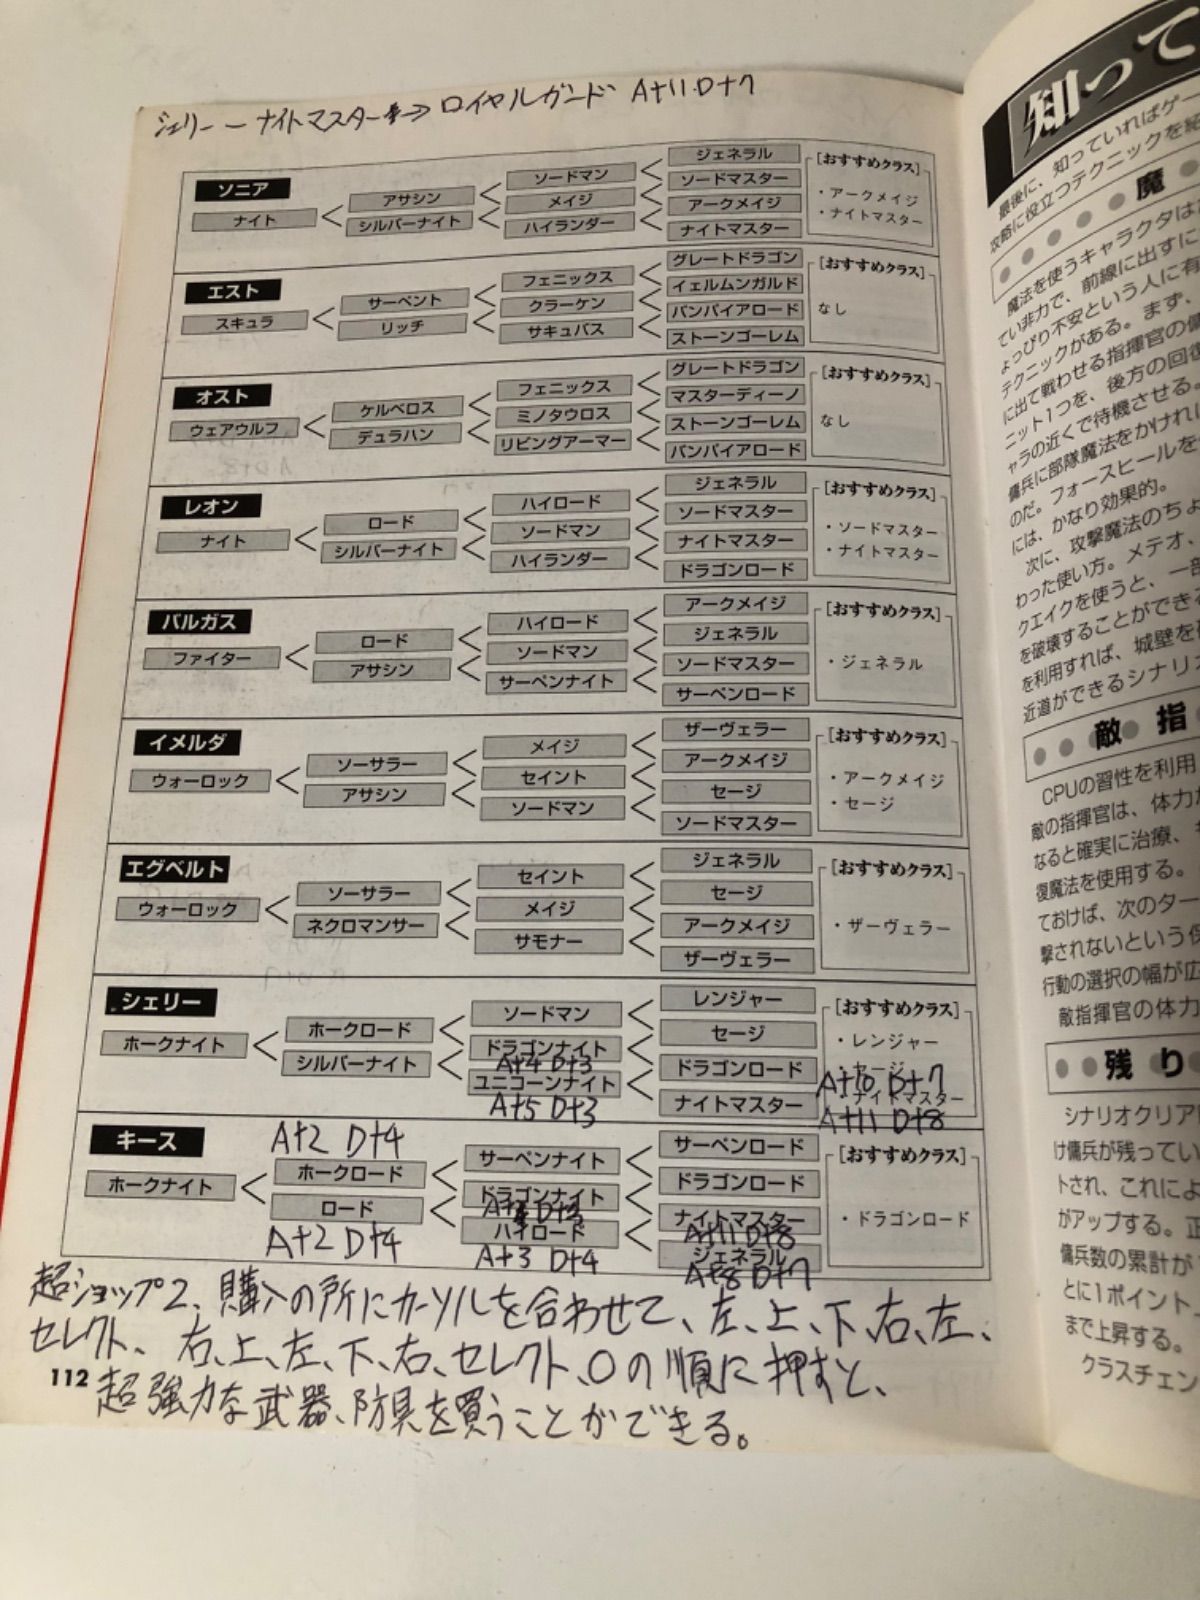 シェリー ー ナイトマスター ⇒ ロイヤルガード A+11 D+7
ソニア
ナイト
アサシン
シルバーナイト
ソードマン
メイジ
ハイランダー
ジェネラル
ソードマスター
アークメイジ
ナイトマスター
[おすすめクラス]
・アークメイジ
・ナイトマスター
エスト
スキュラ
サーペント
リッチ
フェニックス
クラーケン
サキュバス
グレートドラゴン
イェルムンガルド
バンパイアロード
ストーンゴーレム
[おすすめクラス]
なし
オスト
ウェアウルフ
ケルベロス
デュラハン
フェニックス
ミノタウロス
リビングアーマー
グレートドラゴン
マスターディーノ
ストーンゴーレム
バンパイアロード
[おすすめクラス]
なし
レオン
ナイト
ロード
シルバーナイト
ハイロード
ソードマン
ハイランダー
ジェネラル
ソードマスター
ナイトマスター
ドラゴンロード
[おすすめクラス]
・ソードマスター
・ナイトマスター
バルガス
ファイター
ロード
アサシン
ハイロード
ソードマン
サーペンナイト
アークメイジ
ジェネラル
ソードマスター
サーペンロード
[おすすめクラス]
・ジェネラル
イメルダ
ウォーロック
ソーサラー
アサシン
メイジ
セイント
ソードマン
ザーヴェラー
アークメイジ
セージ
ソードマスター
[おすすめクラス]
・アークメイジ
・セージ
エグベルト
ウォーロック
ソーサラー
ネクロマンサー
セイント
メイジ
サモナー
ジェネラル
セージ
アークメイジ
ザーヴェラー
[おすすめクラス]
・ザーヴェラー
シェリー
ホークナイト
ホークロード
シルバーナイト
ソードマン
ドラゴンナイト
A+4 D+3
ユニコーンナイト
A+5 D+3
レンジャー
セージ
ドラゴンロード
ナイトマスター
[おすすめクラス]
・レンジャー
・セージ
A+10 D+7
・ナイトマスター
A+11 D+8
キース
ホークナイト
A+2 D+4
ホークロード
ロード
A+2 D+4
サーペンナイト
ドラゴンナイト
ハイロード
A+3 D+4
サーペンロード
ドラゴンロード
ナイトマスター
A+11 D+8
ジェネラル
A+8 D+7
[おすすめクラス]
・ドラゴンロード
超ショップ2、購入の所にカーソルを合わせて、左、上、下、右、左、
セレクト、右、上、左、下、右、セレクト、○の順に押すと、
超強力な武器、防具を買うことができる。
112
知って
最後に、知っていればゲー
攻略に役立つテクニックを紹
魔
魔法を使うキャラクタは
てい非力で、前線に出すに
ょっぴり不安という人に有
テクニックがある。まず、
に出て戦わせる指揮官の傭
ニット1つを、後方の回復
ャラの近くで待機させる。
傭兵に部隊魔法をかければ
のだ。フォースヒールを
には、かなり効果的。
次に、攻撃魔法のちょ
わった使い方。メテオ、
クエイクを使うと、一部
を破壊することができる
を利用すれば、城壁を
近道ができるシナリオ
敵 指
CPUの習性を利用
敵の指揮官は、体力が
なると確実に治療、
復魔法を使用する。
ておけば、次のター
撃されないという保
行動の選択の幅が広
敵指揮官の体力
残 り
シナリオクリア
け傭兵が残ってい
トされ、これによ
がアップする。正
傭兵数の累計が
とに1ポイント
まで上昇する。
クラスチェン